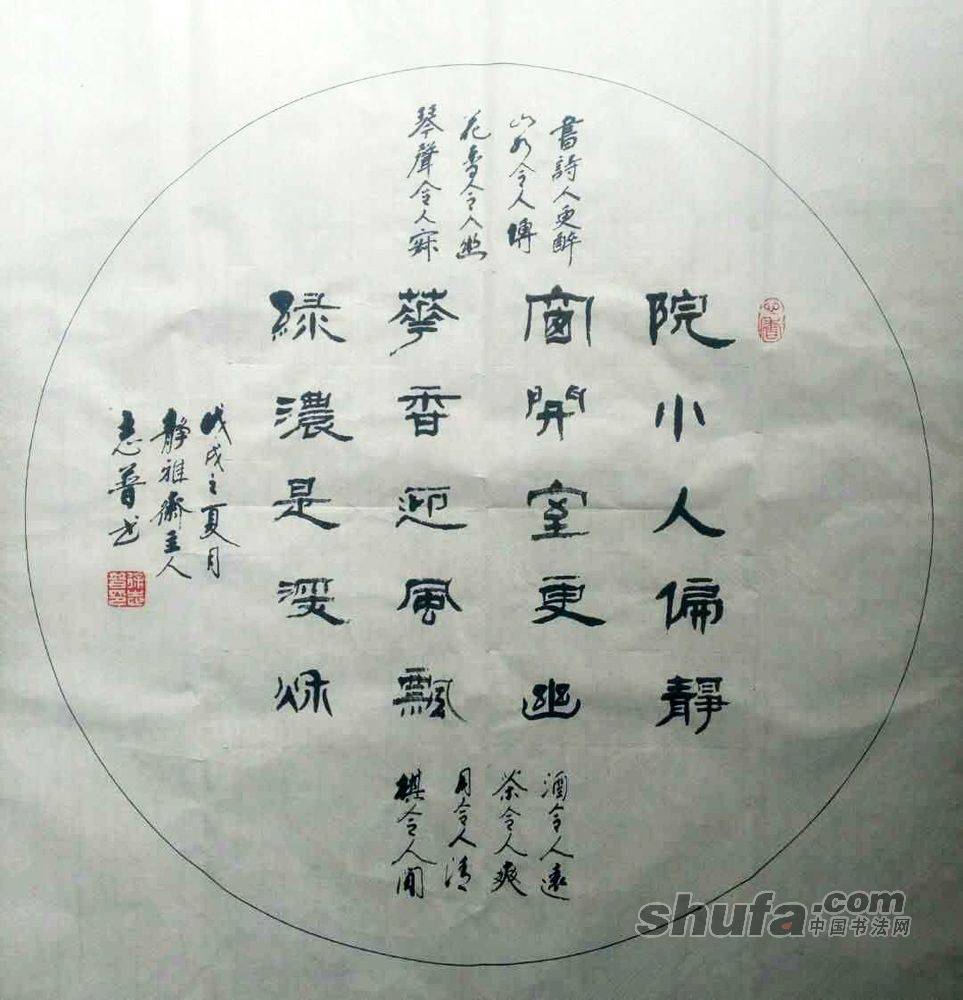 書詩人更醉
山水令人博
花香令人幽
琴聲令人寂
院小人偏靜
窗開室更幽
華香迎風飄
綠濃是深秌
酒令人遠
茶令人爽
月令人清
棋令人閒
戊戌之夏月
靜雅齋主人
志普书
shufa.com
中国书法网